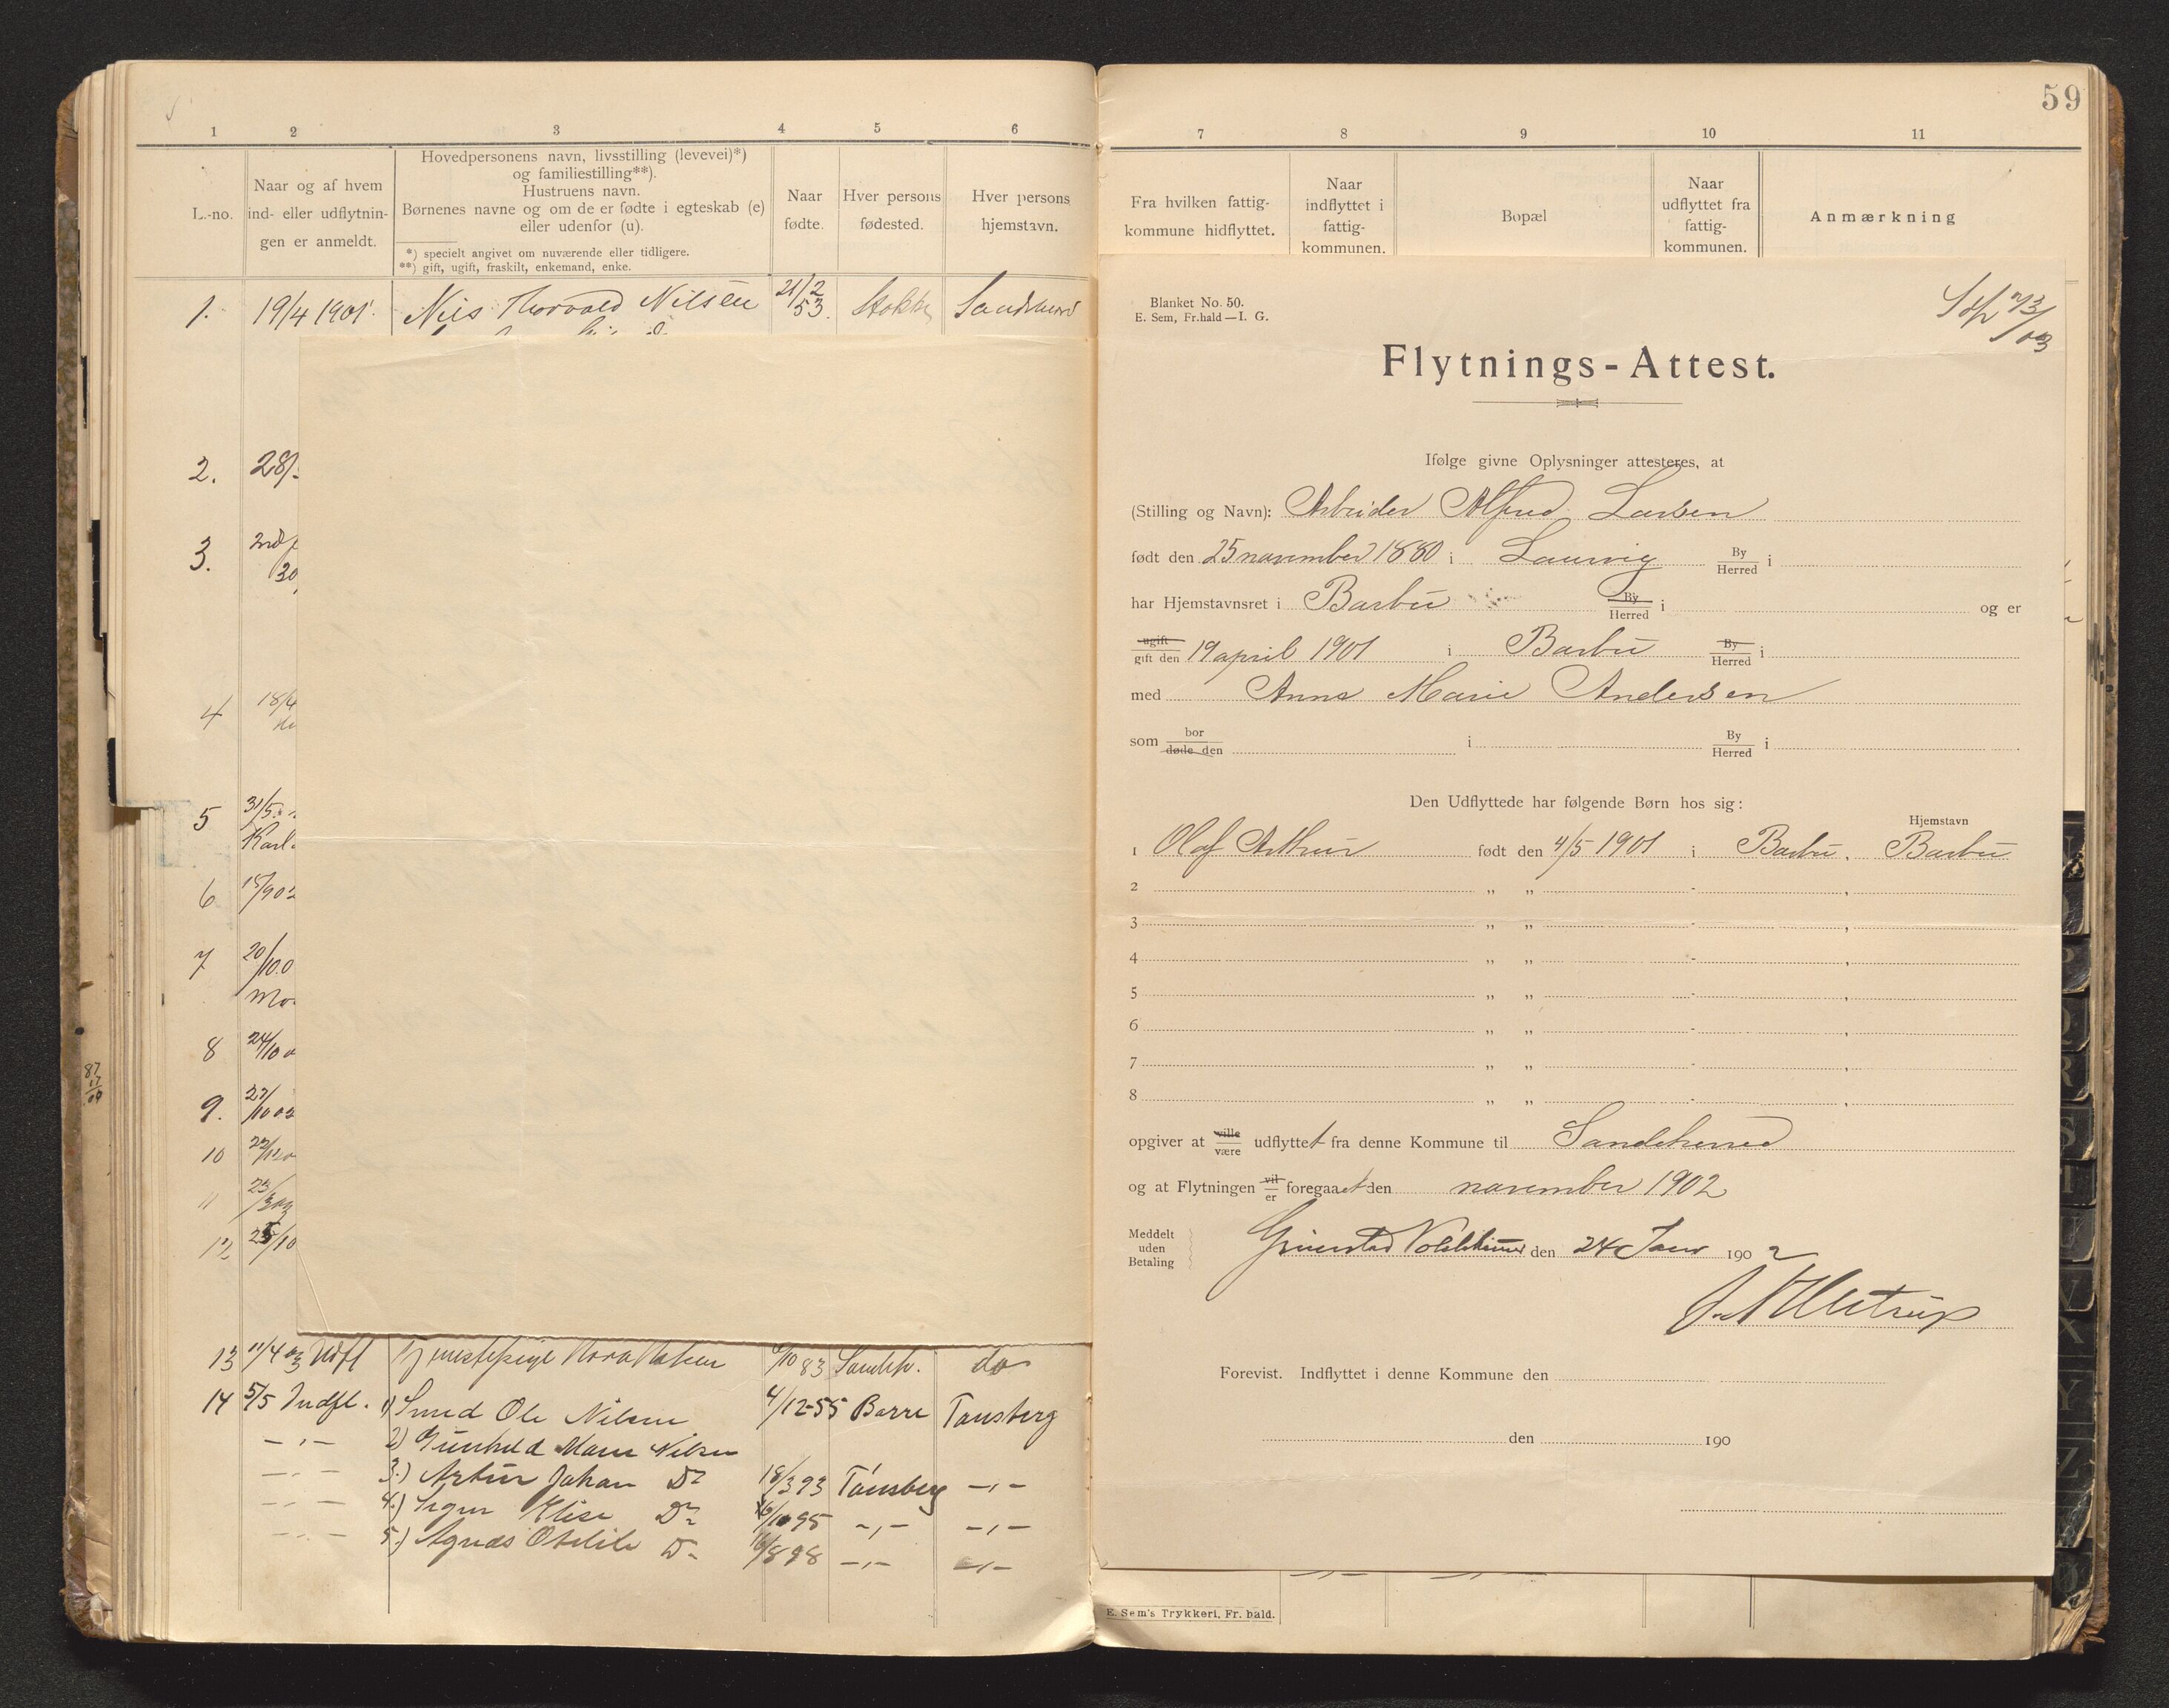 59
1 2 3 4 5 6
L.-no.
Naar og af hvem
ind- eller udflytnin-
gen er anmeldt.
Hovedpersonens navn, livsstilling (levevei)*)
og familiestilling**).
Hustruens navn.
Børnenes navne og om de er fødte i egteskab (e)
eller udenfor (u).
*) specielt angivet om nuværende eller tidligere.
**) gift, ugift, fraskilt, enkemand, enke.
Naar
fødte.
Hver persons
fødested.
Hver persons
hjemstavn.
1. 19/4 1901. Nils Thorvald Nilsen 21/2 53. Stokke Sandeherred
2. 28/
3. Indf
30
4 18/4
5 31/5
Karl
6 15/902
7 20/10.0
Mo
8 24/10
9. 27/10 02
10
11 23/3 03
12 25/10
13 11/4 03 Udfl Tjenestepige /10 83 Sandeh. do
14 5/5 Indfl. 1) Smed Ole Nilsen 4/12-55 Borre Tønsberg
— „ — 2) Gunhild Marie Nilsen
— „ — 3.) Artur Johan Do 18/3 93 Tønsberg — „ —
— „ — 4.) Signe Elise Do /10 95 — „ — — „ —
— „ — 5.) Agnes Otelile Do 16/8 98 — „ — — „ —
7 8 9 10 11
Fra hvilken fattig-
kommune hidflyttet.
Naar
indflyttet i
fattig-
kommunen.
Bopæl
Naar
udflyttet fra
fattig-
kommunen.
Anmærkning
Blanket No. 50.
E. Sem, Fr.hald—I. G.
Flytnings-Attest.
Ifølge givne Oplysninger attesteres, at
(Stilling og Navn): Arbeider Alfred Larsen
født den 25 november 1880 i Laurvig By Herred i
har Hjemstavnsret i Barbu By Herred i og er
ugift gift den 19 april 1901 i Barbu By Herred i
med Anna Marie Andersen
som bor døde den i By Herred i
Den Udflyttede har følgende Børn hos sig:
Hjemstavn
1 Olaf Arthur født den 4/5 1901 i Barbu, Barbu
2 „ „ - ,
3 „ „ - ,
4 „ „ - ,
5 „ „ - ,
6 „ „ - ,
7 „ „ - ,
8 „ „ - ,
opgiver at ville være udflyttet fra denne Kommune til Sandeherred
og at Flytningen vil er foregaaet den november 1902
Meddelt
uden
Betaling
Grimstad den 24 Janr 1902
Forevist. Indflyttet i denne Kommune den
den 190
E. Sem's Trykkeri, Fr. hald.